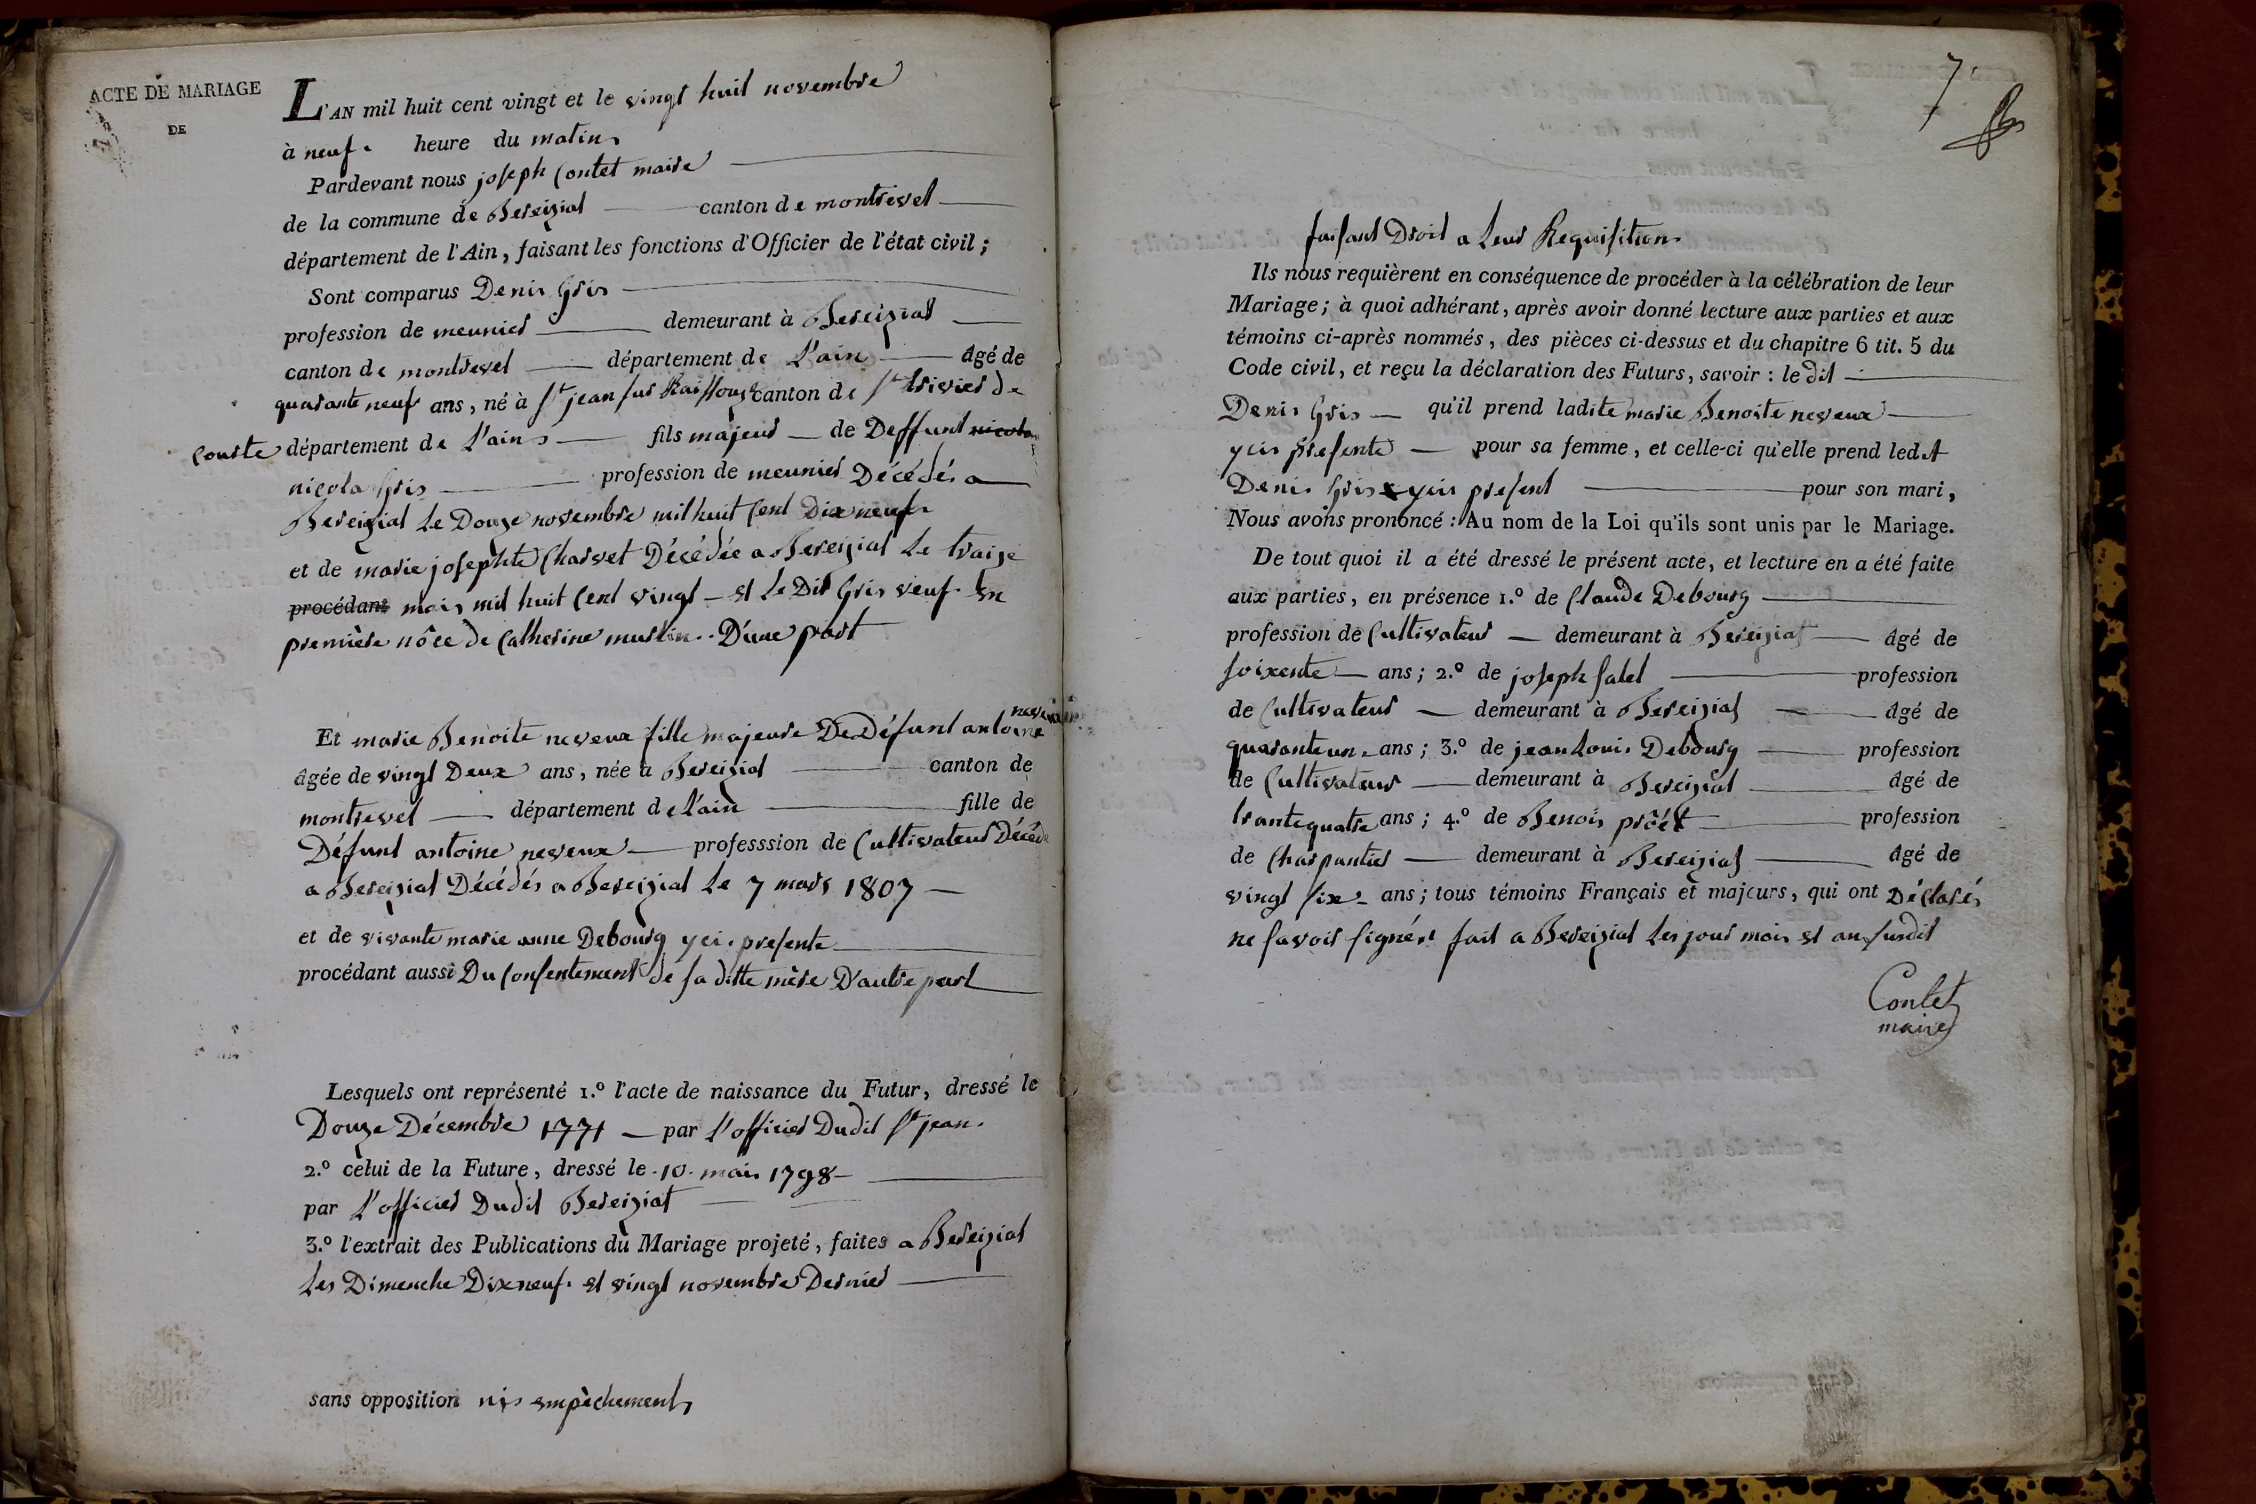 ACTE DE MARIAGE
DE
L'AN mil huit cent vingt et le vingt huit novembre
à neuf. heure du matin
Pardevant nous joseph Contet maire
de la commune de Bereiziat canton de montrevel
département de l'Ain, faisant les fonctions d'Officier de l'état civil ;
Sont comparus Denis Gris
profession de meunier demeurant à Bereiziat
canton de montrevel département de L'ain âgé de
quarante neuf ans, né à St jean sur Raissouze canton de St trivier de
Courte département de L'ain fils majeur de Deffunt nicola
nicola Gris profession de meunier Décédés a
Bereiziat Le Douze novembre mil huit Cent Dix neuf
et de marie josephte Charvet Décédée a Bereiziat Le traize
procédant mais mil huit Cent vingt et Le Dit Gris veuf En
première nôce de Catherine murlin.. D'une part
neveux
Et marie Benoite neveux fille majeure De Défunt antoine
âgée de vingt Deux ans, née à Bereiziat canton de
montrevel département de L'ain fille de
Défunt antoine neveux professsion de Cultivateur Décéd
a Bereiziat Décédés a Bereiziat Le 7 mars 1807
et de vivante marie anne Debourg yci presente
procédant aussi Du Consentement de sa ditte mère D'autre part
Lesquels ont représenté 1.º l'acte de naissance du Futur, dressé le
Douze Décembre 1771 par L'officier Dudit St jean.
2.º celui de la Future, dressé le 10 mais 1798
par L'officier Dudit Bereiziat
3.º l'extrait des Publications du Mariage projeté, faites a Bereiziat
Les Dimenche Dixneuf. et vingt novembre Dernier
sans opposition nis empêchements
7
faisant Droit a Leur Requisition
Ils nous requièrent en conséquence de procéder à la célébration de leur
Mariage ; à quoi adhérant, après avoir donné lecture aux parties et aux
témoins ci-après nommés, des pièces ci-dessus et du chapitre 6 tit. 5 du
Code civil, et reçu la déclaration des Futurs, savoir : le dit
Denis Gris qu'il prend ladite marie Benoite neveux
ycis presente pour sa femme, et celle-ci qu'elle prend ledit
Denis Gris ycis present pour son mari,
Nous avons prononcé : Au nom de la Loi qu'ils sont unis par le Mariage.
De tout quoi il a été dressé le présent acte, et lecture en a été faite
aux parties, en présence 1.º de Claude Debourg
profession de Cultivateur demeurant à Bereiziat âgé de
soixente ans ; 2.º de joseph falet profession
de Cultivateur demeurant à Bereiziat âgé de
quaranteun ans ; 3.º de jean Louis Debourg profession
de Cultivateur demeurant à Bereiziat âgé de
trantequatre ans ; 4.º de Benois profession
de Charpantier demeurant à Bereiziat âgé de
vingt six ans ; tous témoins Français et majeurs, qui ont Déclarés
ne savoir signér fait a Bereiziat Les jour mois et an susdit
Contet
maire